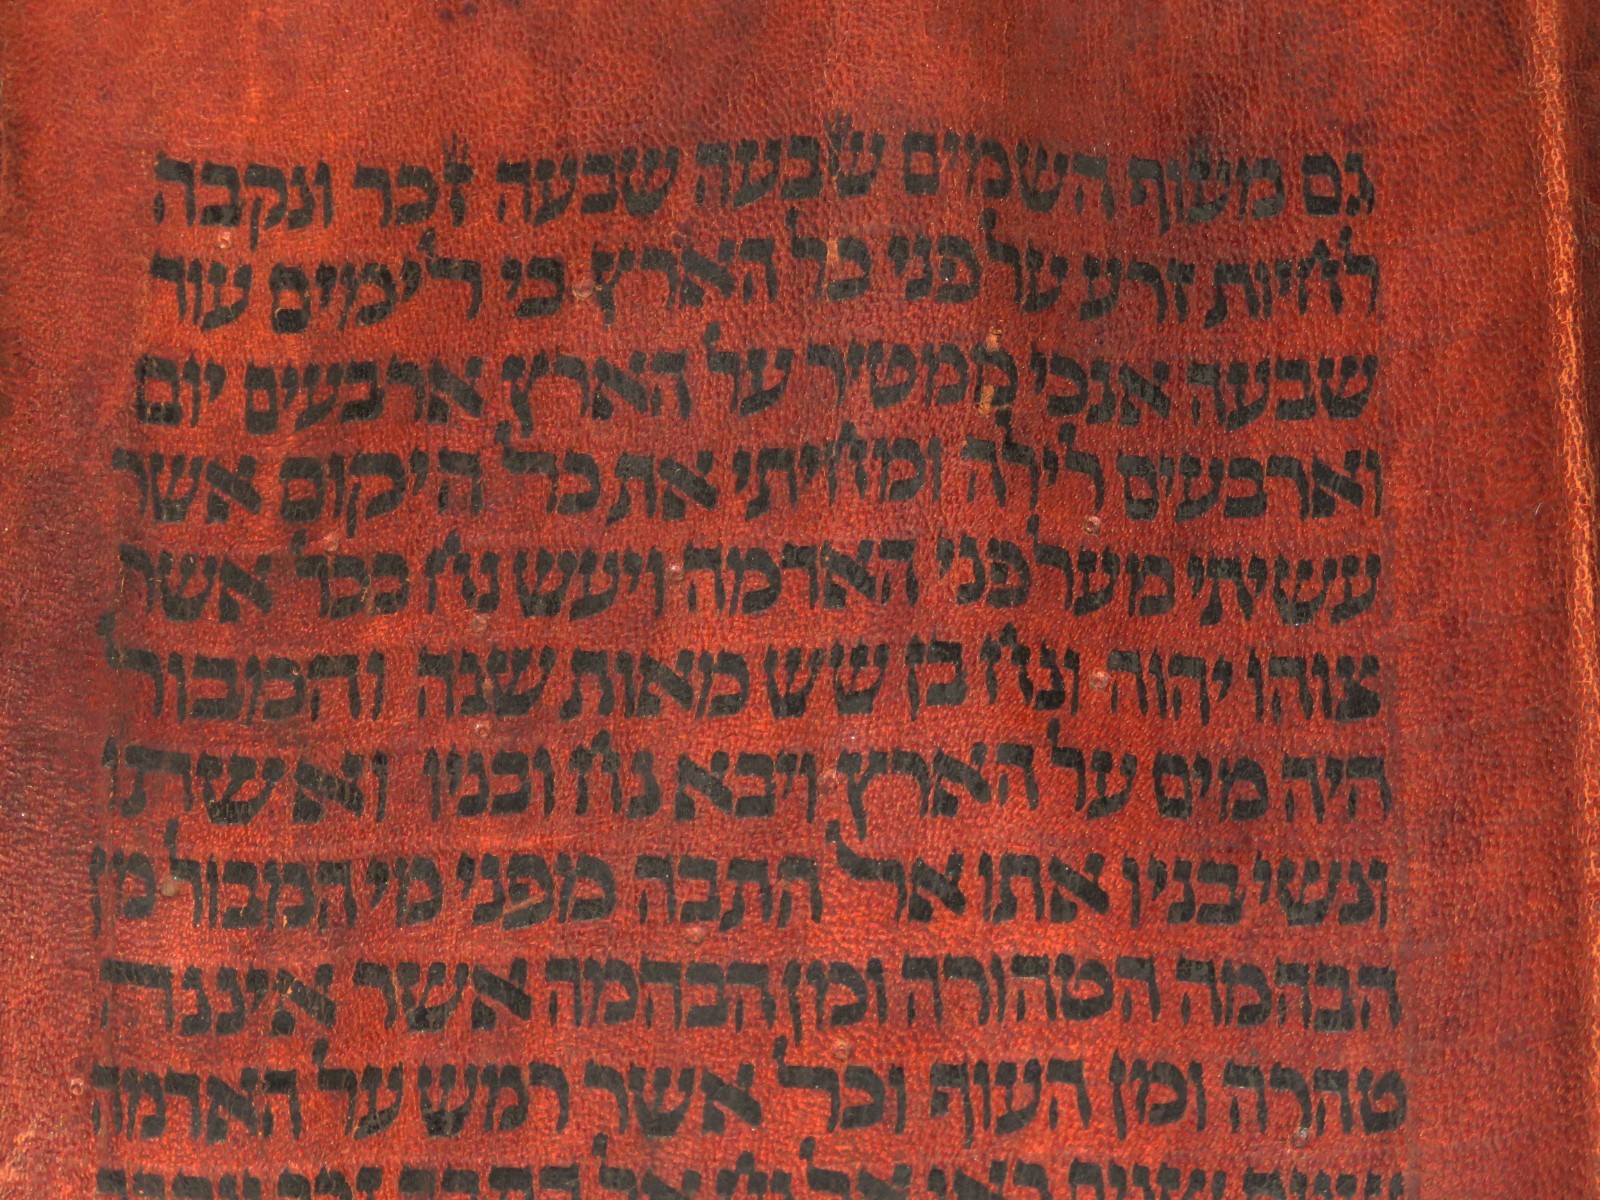 גם מעוף השמים שבעה שבעה זכר ונקבה
לחיות זרע על פני כל הארץ כי לימים עוד
שבעה אנכי ממטיר על הארץ ארבעים יום
וארבעים לילה ומחיתי את כל היקום אשר
עשיתי מעל פני האדמה ויעש נח ככל אשר
צוהו יהוה ונח בן שש מאות שנה והמבול
היה מים על הארץ ויבא נח ובניו ואשתו
ונשי בניו אתו אל התבה מפני מי המבול מן
הבהמה הטהורה ומן הבהמה אשר איננה
טהרה ומן העוף וכל אשר רמש על האדמה
שנים שנים באו אל נח אל התבה זכר ונקבה